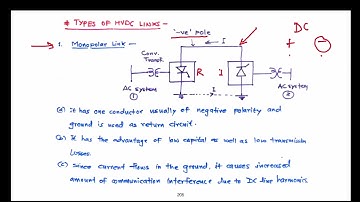 * TYPES OF HVDC LINKS:-
DC
'-ve' pole
+ -
1. Monopolar Link -
I
Conv.
Transf.
R
I
AC system
①
AC system
②
I
(a) It has one conductor usually of negative polarity and
ground is used as return circuit.
(b) It has the advantage of low capital as well as low transmission
losses.
(c) Since current flows in the ground, it causes increased
amount of communication interference due to DC line harmonics.
205